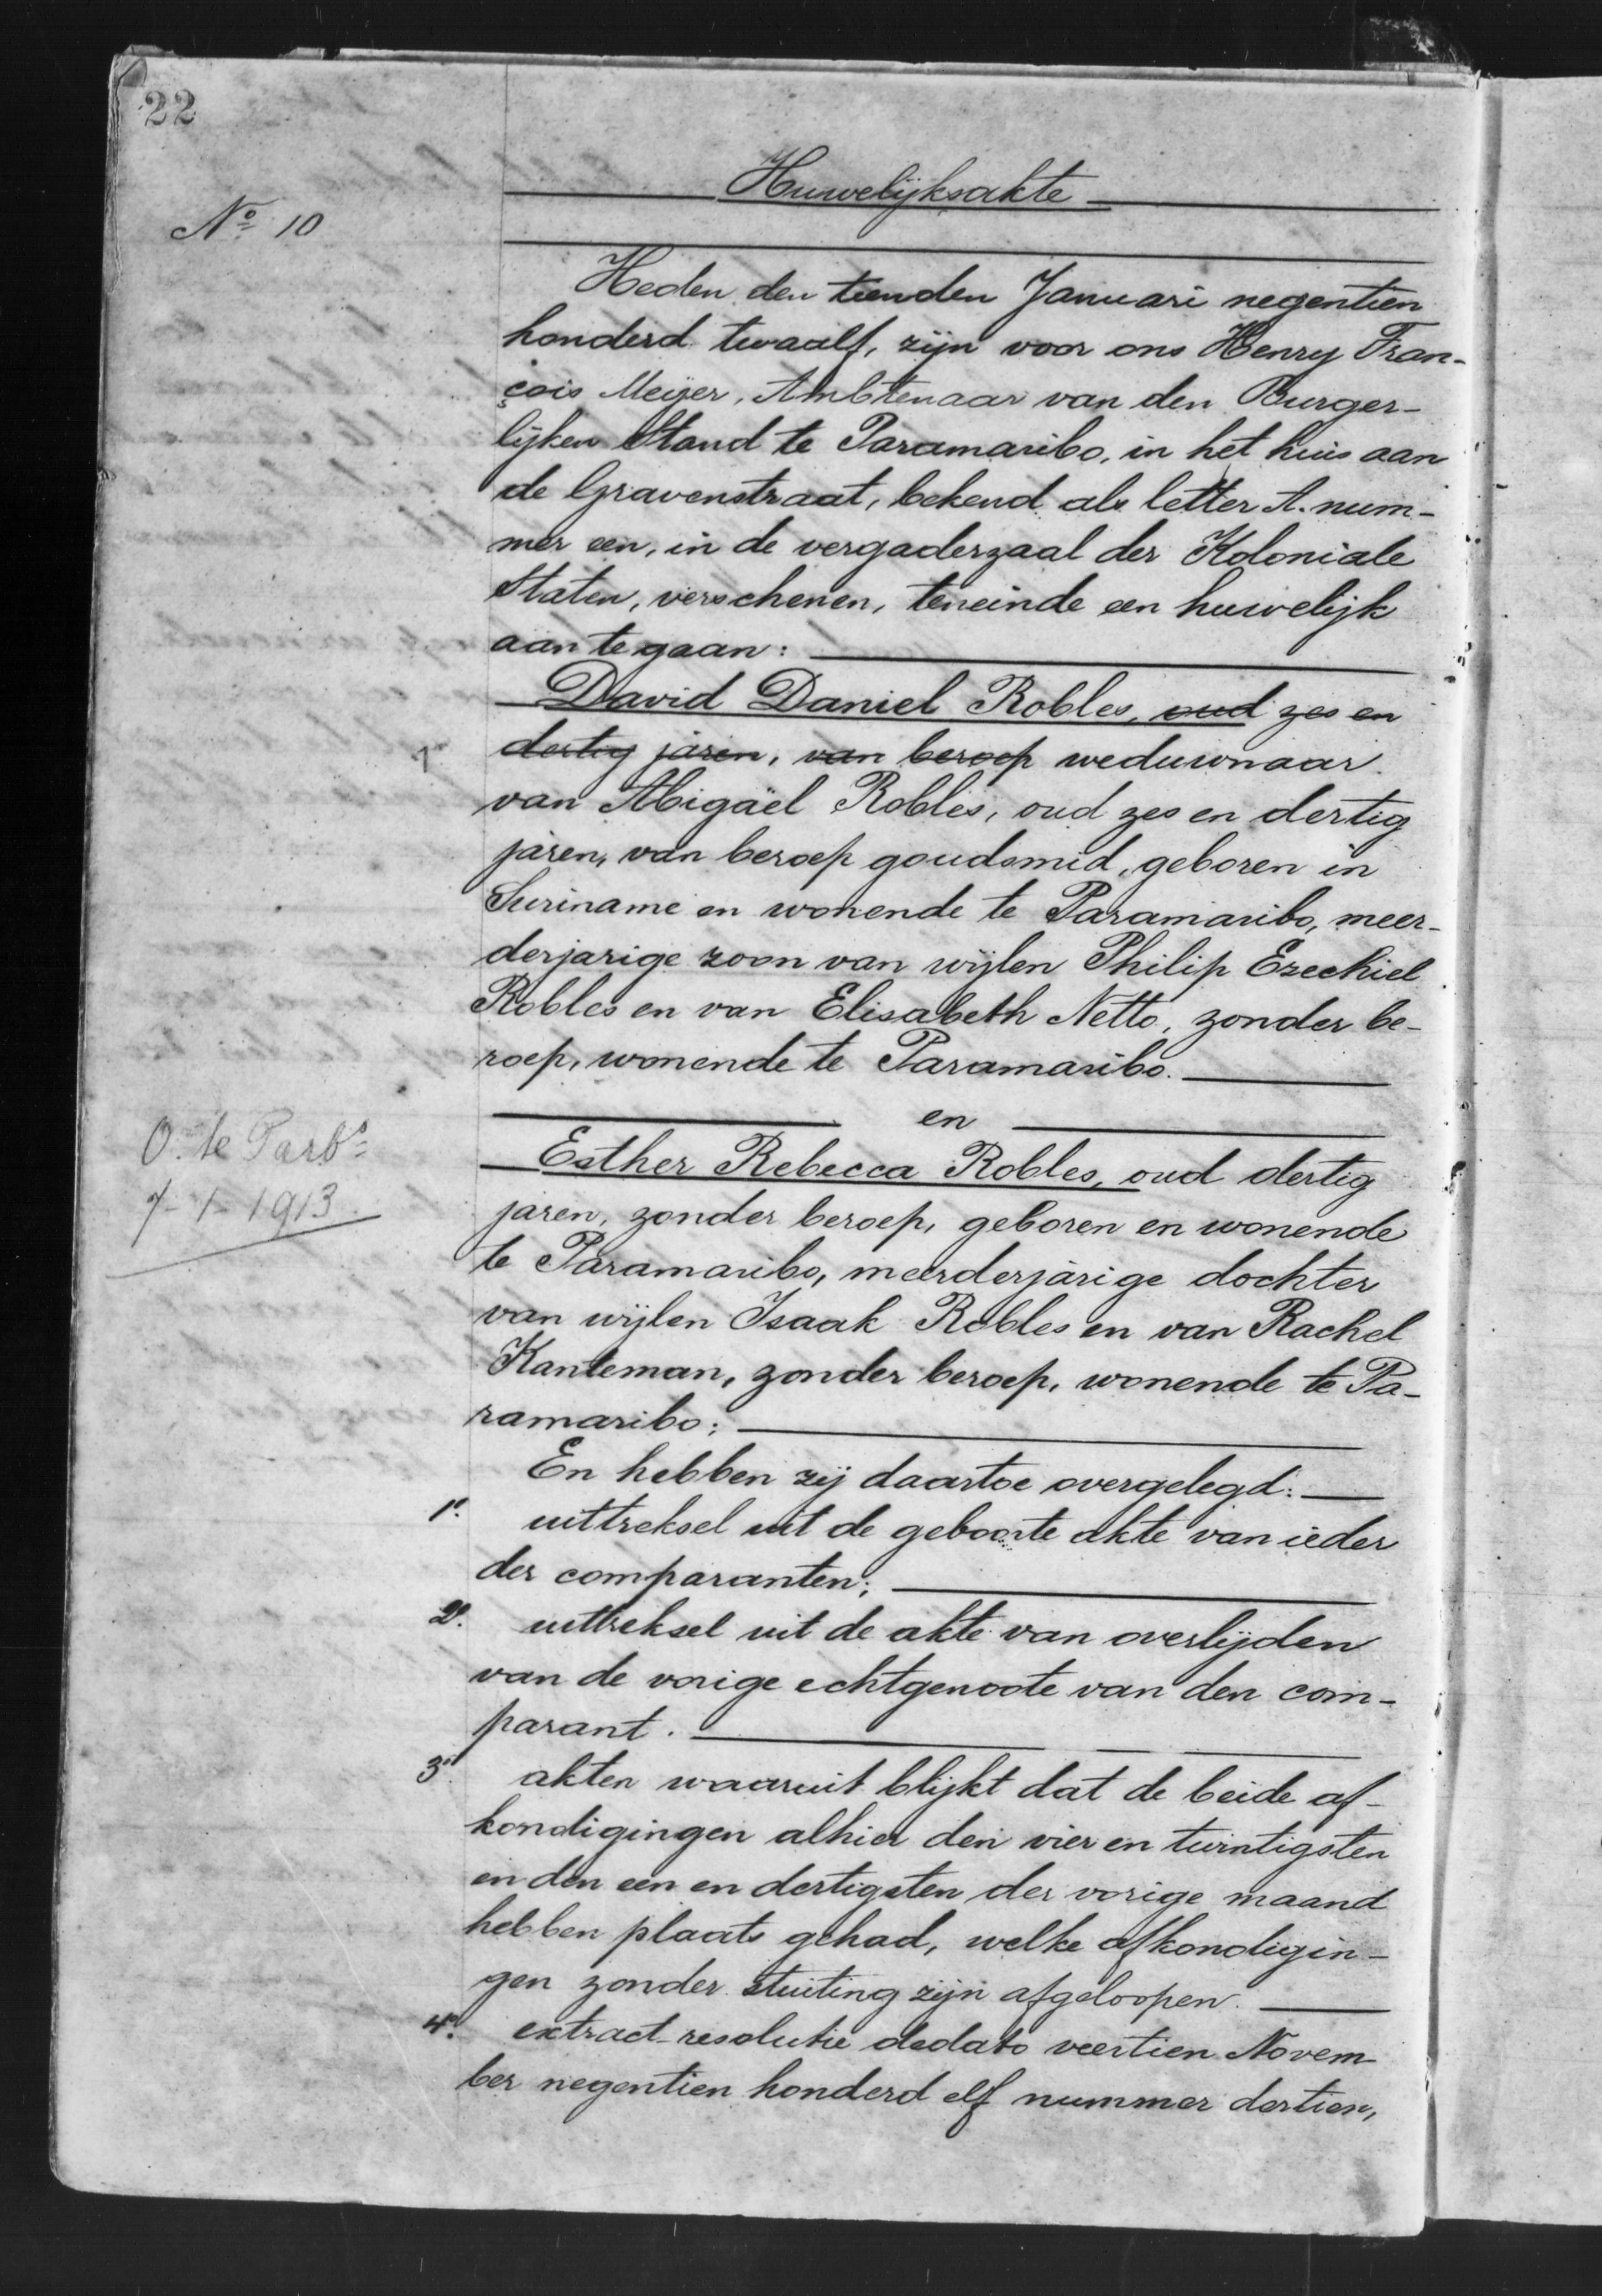 22
Huwelijksakte
No 10
Heden den tienden Januari negentien
honderd twaalf, zijn voor ons Henry Fran-
çois Meijer, Ambtenaar van den Burger-
lijken Stand te Paramaribo, in het huis aan
de Gravenstraat, bekend als letter A. num-
mer een, in de vergaderzaal der Koloniale
Staten, verschenen, teneinde een huwelijk
aan te gaan:
David Daniel Robles, oud zes en
dertig jaren, van beroep weduwnaar
van Abigaël Robles, oud zes en dertig
jaren, van beroep goudsmid, geboren in
Suriname en wonende te Paramaribo, meer-
derjarige zoon van wijlen Philip Ezechiel
Robles en van Elisabeth Netto, zonder be-
roep, wonende te Paramaribo.
en
O. te Parbo
7-1-1913.
Esther Rebecca Robles, oud dertig
jaren, zonder beroep, geboren en wonende
te Paramaribo, meerderjarige dochter
van wijlen Isaak Robles en van Rachel
Kanteman, zonder beroep, wonende te Pa-
ramaribo;
En hebben zij daartoe overgelegd:
1o. uittreksel uit de geboorte akte van ieder
der comparanten;
2o. uittreksel uit de akte van overlijden
van de vorige echtgenoote van den com-
parant.
3o. akten waaruit blijkt dat de beide af-
kondigingen alhier den vier en twintigsten
en den een en dertigsten der vorige maand
hebben plaats gehad, welke afkondigin-
gen zonder stuiting zijn afgeloopen.
4o. extract-resolutie dedato veertien Novem-
ber negentien honderd elf nummer dertien,